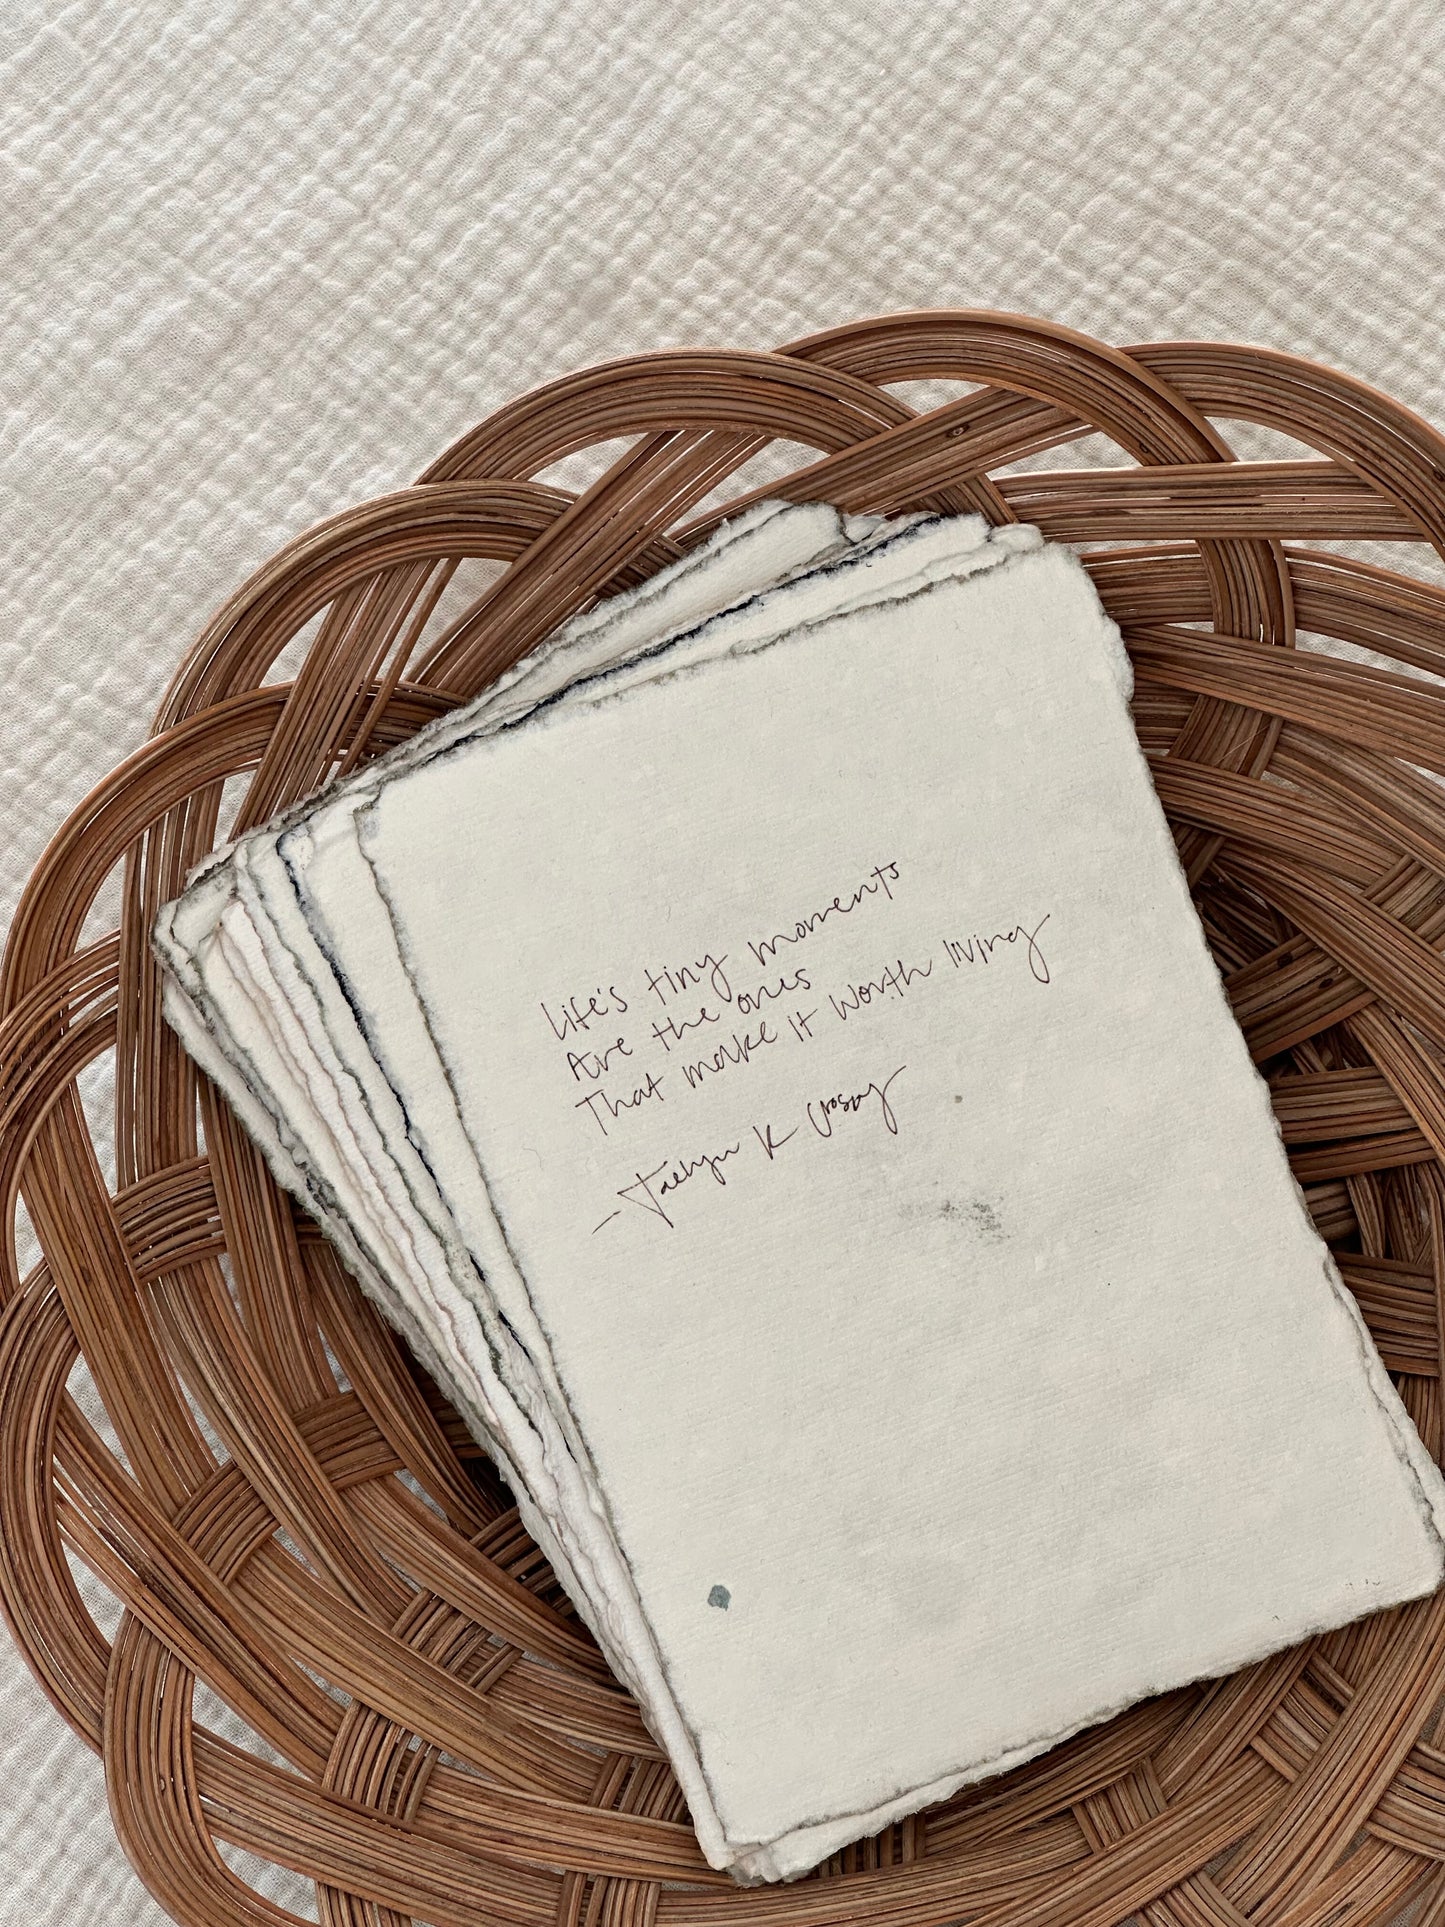 Life's tiny moments
Are the ones
That make it worth living
- Taelyn K Crosby